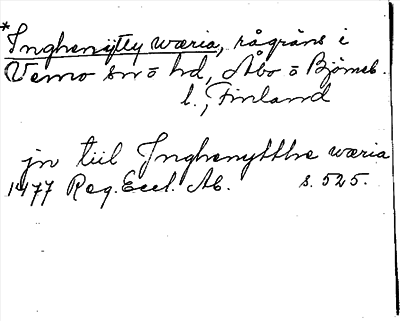 *Inghenytty wæria, rågräns i
Vemo sn o hd, Åbo o Björneb.
l., Finland
jn tiil Inghenytthe wæria
1477 Reg. Eccl. Ab. s. 525.